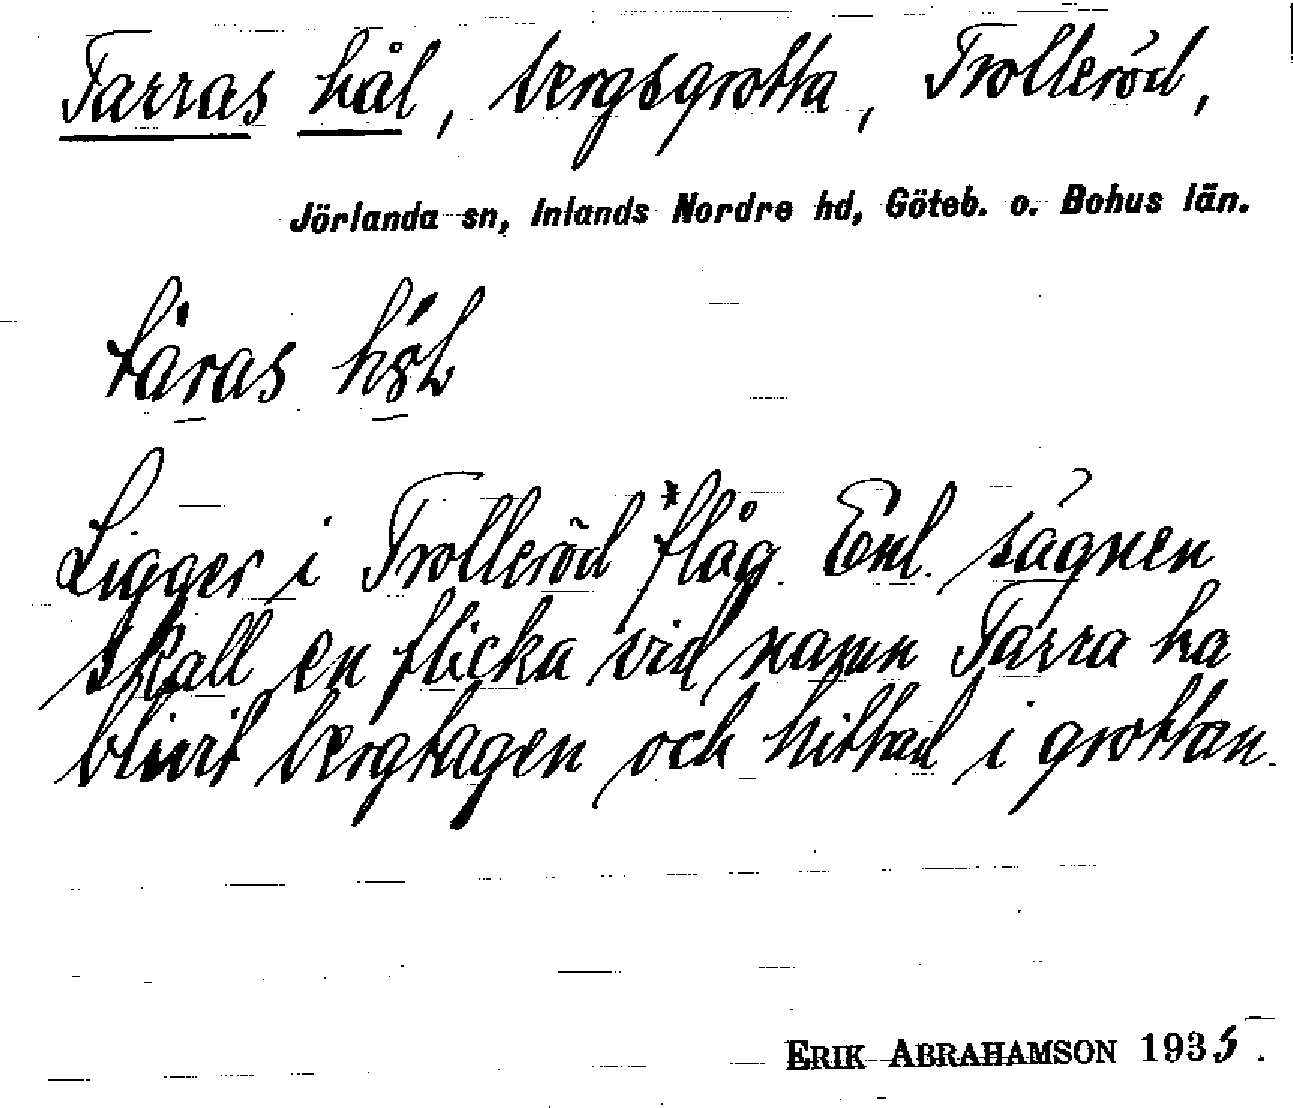 Tarras hål, bergsgrotta, Trolleröd,
Jörlanda sn, Inlands Nordre hd, Göteb. o. Bohus län.
Ligger i Trolleröd *flåg. Enl. sägnen
skall en flicka vid namn Tarra ha
blivit bergtagen och hittad i grottan.
ERIK ABRAHAMSON 1935.